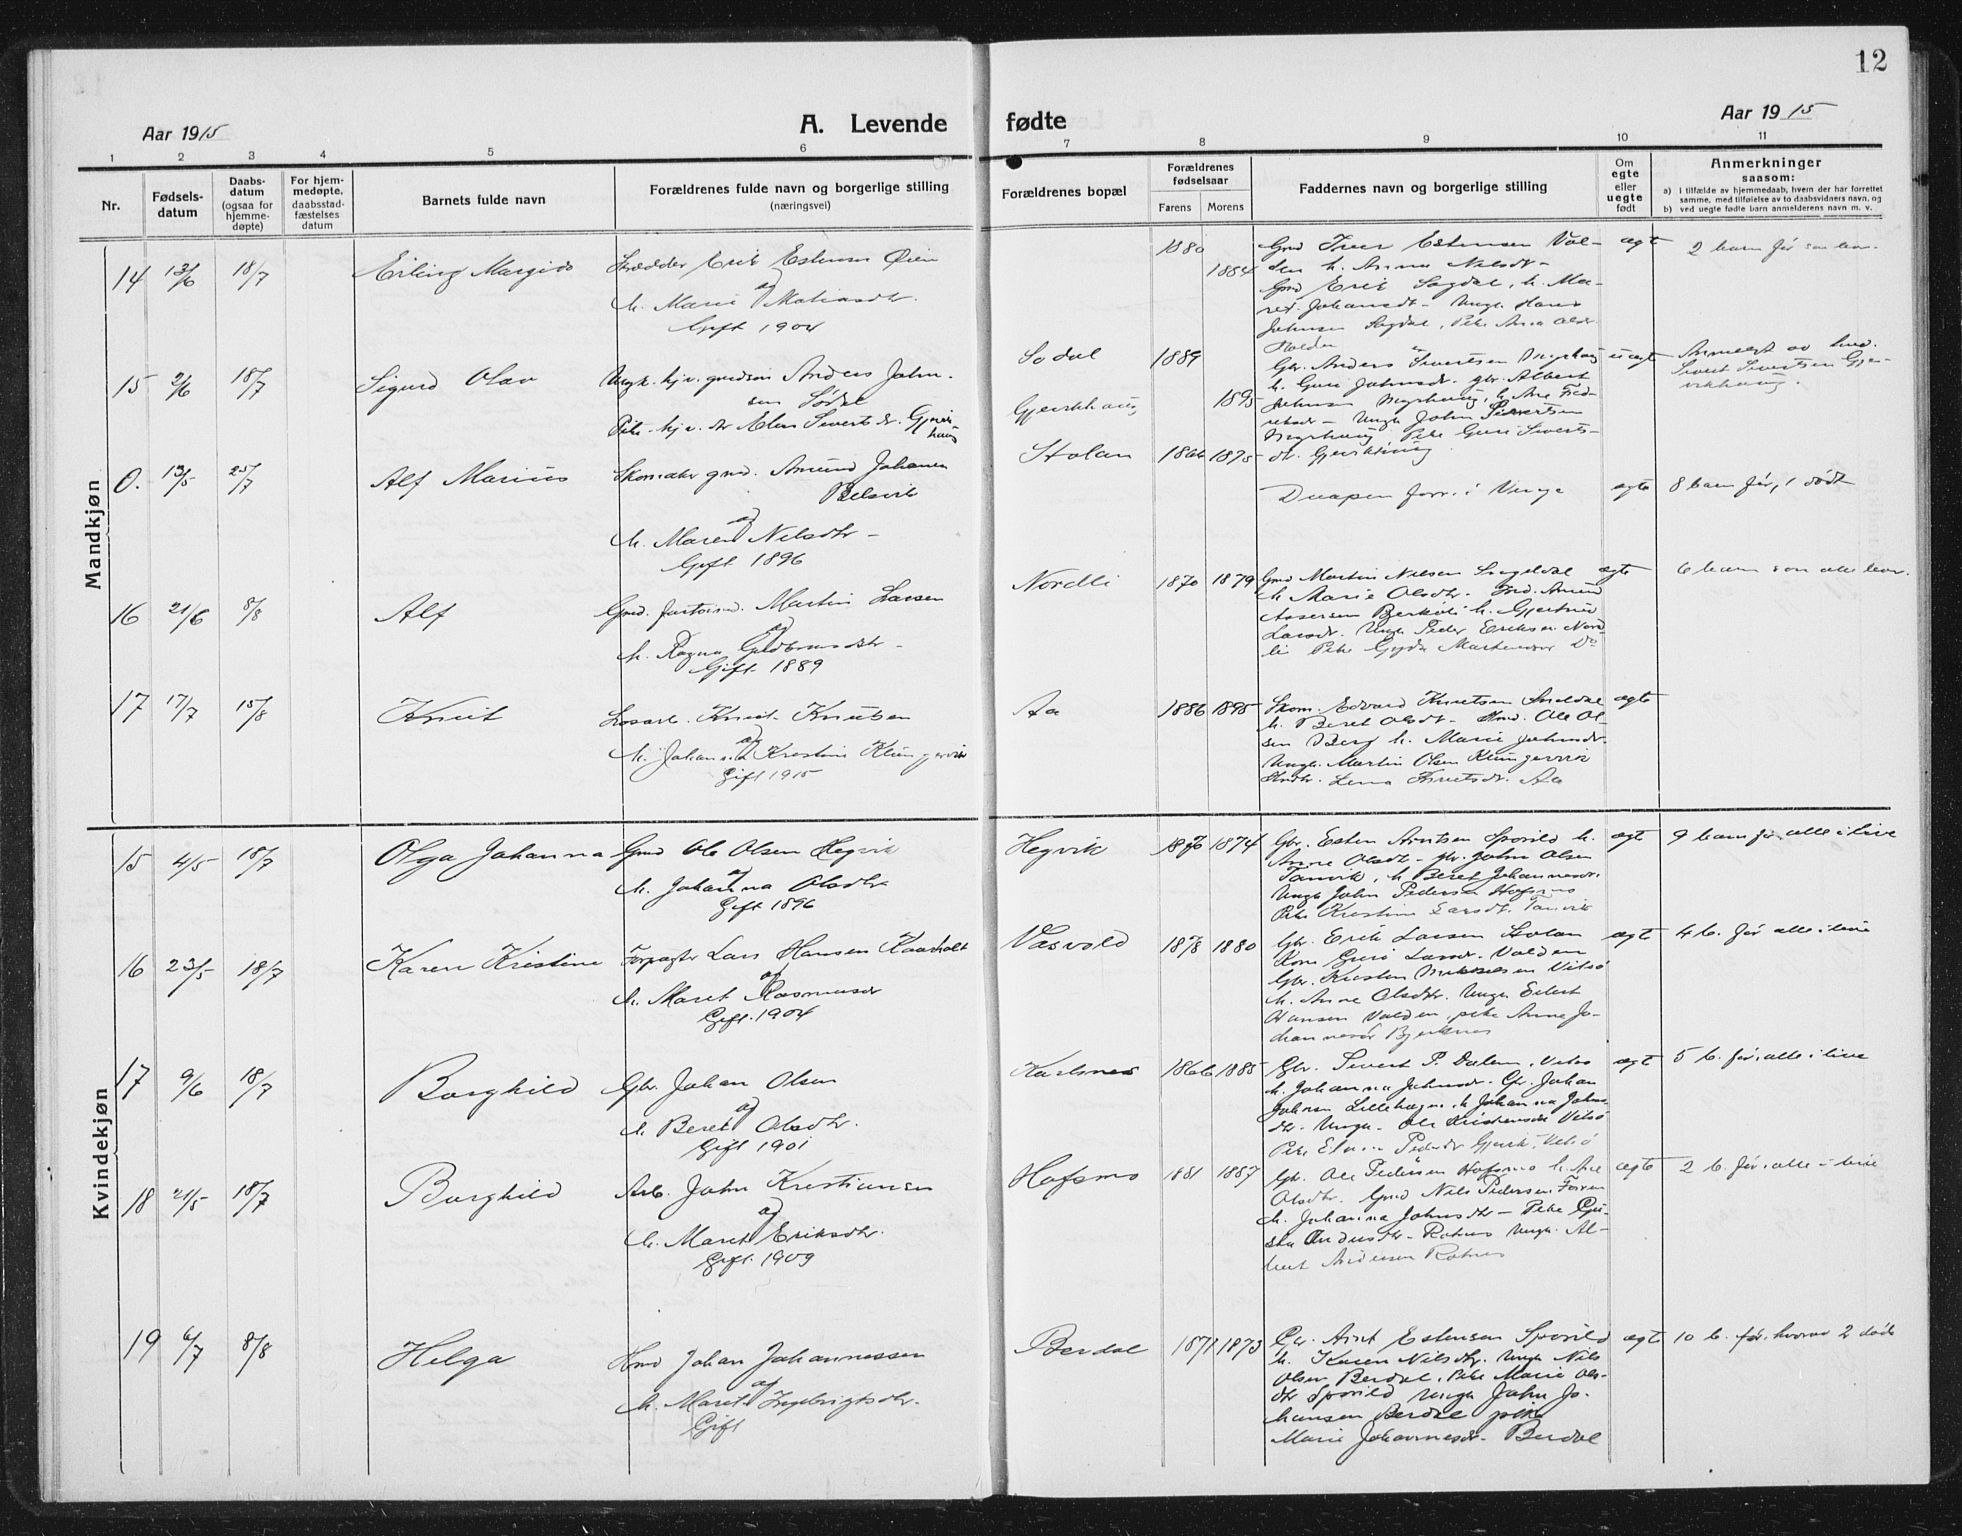 12
Aar 1915
A. Levende fødte
Aar 1915
1 2 3 4 5 6 7 8 9 10 11
Nr.
Fødsels-
datum
Daabs-
datum
(ogsaa for
hjemme-
døpte)
For hjem-
medøpte,
daabsstad-
fæstelses
datum
Barnets fulde navn
Forældrenes fulde navn og borgerlige stilling
(næringsvei)
Forældrenes bopæl
Forældrenes
fødselsaar
Farens Morens
Faddernes navn og borgerlige stilling
Om
egte
eller
uegte
født
Anmerkninger
saasom:
a) I tilfælde av hjemmedaab, hvem der har forrettet
samme, med tilføielse av to daabsvidners navn, og
b) ved uegte fødte barn anmelderens navn m. v.
Mandkjøn
14 13/6 18/7 Erling Margido
Skrædder Erik Estensen Øien
og
h. Marie Matiasdtr.
Gift 1904
1880 1884
Gmd Iver Estensen Val-
den h. Anna Nilsdr-
Gmd Erik Sagdal, h. Ma-
ret Johansdt- Ungk. Hans
Johnsen Sagdal, Pike Anna Olsdr.
Holden
egt
2 barn før som lever.
15 2/6 18/7 Sigurd Olav
Ungk. hjv. gmdsøn Anders John-
sen Sødal
Pike hjv. dtr Elen Sivertsdr. Gjervik-
haug
Sodal
Gjervikhaug
1889 1895
Gbr. Anders Sivertsen
h. Guri Johnsdr. gbr. Albert
Johnsen h. Ane Fred-
riksdr - Ungk John Sivertsen
Pike Guri Siverts-
dr. Gjervikhaug
uegt
Anmeldt av
Sivert Sivertsen Gjer-
vikhaug.
0. 13/5 25/7 Alf Marius
Skomaker gmd. Amund Johansen
Belsvik
og
h. Maren Nilsdtr -
Gift 1896
Stolan
1866 1875
i Vinje
egte
8 barn før, 1 dødt
16 21/6 8/8 Alf
Gmd. Martin Larsen
og
h. Ragna Guldbrandsdtr -
Gift 1889
Nordli
1870 1879
Gmd Martin Nilsen
h. Marie Olsdtr. Amund
Assersen h. Gjertrud
Larsdr. Ungk Peder Eriksen Nord-
li Pike Gyda Martinsen Do
egte
6 barn som alle lever.
17 17/7 15/8 Knut
Løsarb. Knut Knutsen
og
h. Johanna Kristine Klungervik
Gift 1915
Aa
1886 1895
Skom. Edvard Knutsen
h. Beret Olsdt- Ole Ol-
sen Berg h. Marie Johnsdr.
Ungk. Martin Olsen Klungervik
Lena Knutsdr. Aa
egte
Kvindekjøn
15 4/5 18/7 Olga Johanna
Gmd Ole Olsen Hegvik
og
h. Johanna Olsdtr
Gift 1896
Hegvik
1876 1874
Gbr. Esten Arntsen Sporild h.
Anne Olsdt- gbr. John Olsen
Tanvik, h Beret Johannesdr.
Ungk John Pedersen Hofsmo
Pike Kristine Larsdt. Tanvik
egt
9 barn før alle i live
16 23/5 18/7 Karen Kristine
Forpagter Lars Hansen Kaarholt
og
h. Maret Rasmusdr
Gift. 1904
Vasvold
1878 1880
Gbr. Erik Larsen Stolan
Kone Guri Larsdr. Valden
Gbr. Kristen Mikkelsen Vitsø
h. Anne Olsdtr. Ungk Edert
Hansen Valden, pike Anna Jo-
hannesdr Bjerknes
egt
4 b. før alle i live
17 9/6 18/7 Borghild
Gbr. Johan Olsen
og
h. Beret Olsdtr.
Gift 1901
Karlsnes
1866 1885
Gbr. Sivert P. Dalum, Vitsø
h. Johanna Johnsdr. Gbr. Johan
Johnsen h. Johanna Johns-
dtr. Ungk. Ole Kristensen Vitsø
Pike Pedersdr Gjervik, Vitsø
egt
5 b. før, alle i live
18 21/5 18/7 Borghild
Arb. John Kristiansen
og
h. Maret Eriksdtr.
Gift. 1909
Hofsmo
1881 1887
Gbr. Ole Pedersen Hofsmo h. Ane
Olsdtr. Gmd Nils Pedersen Forren
h. Johanna Johnsdtr - Pike
Andersdtr- Rotnes Ungk. Al-
bert Andersen Rotnes
egte
2 b. før, alle i live
19 6/7 8/8 Helga
Gmd Johan Johannessen
og
h. Maret Ingebrigtsdtr.
Gift
Berdal
1871 1873
Gbr. Arnt Estensen Sporild
h. Karen Nilsdtr. Ungk Nils
Olsen Berdal, Pike Marie Ols-
dtr Sporild Ungk John Jo-
hansen Berdal pike
Marie Johannesdr- Berdal
egt
10 b. før, hvorav 2 døde